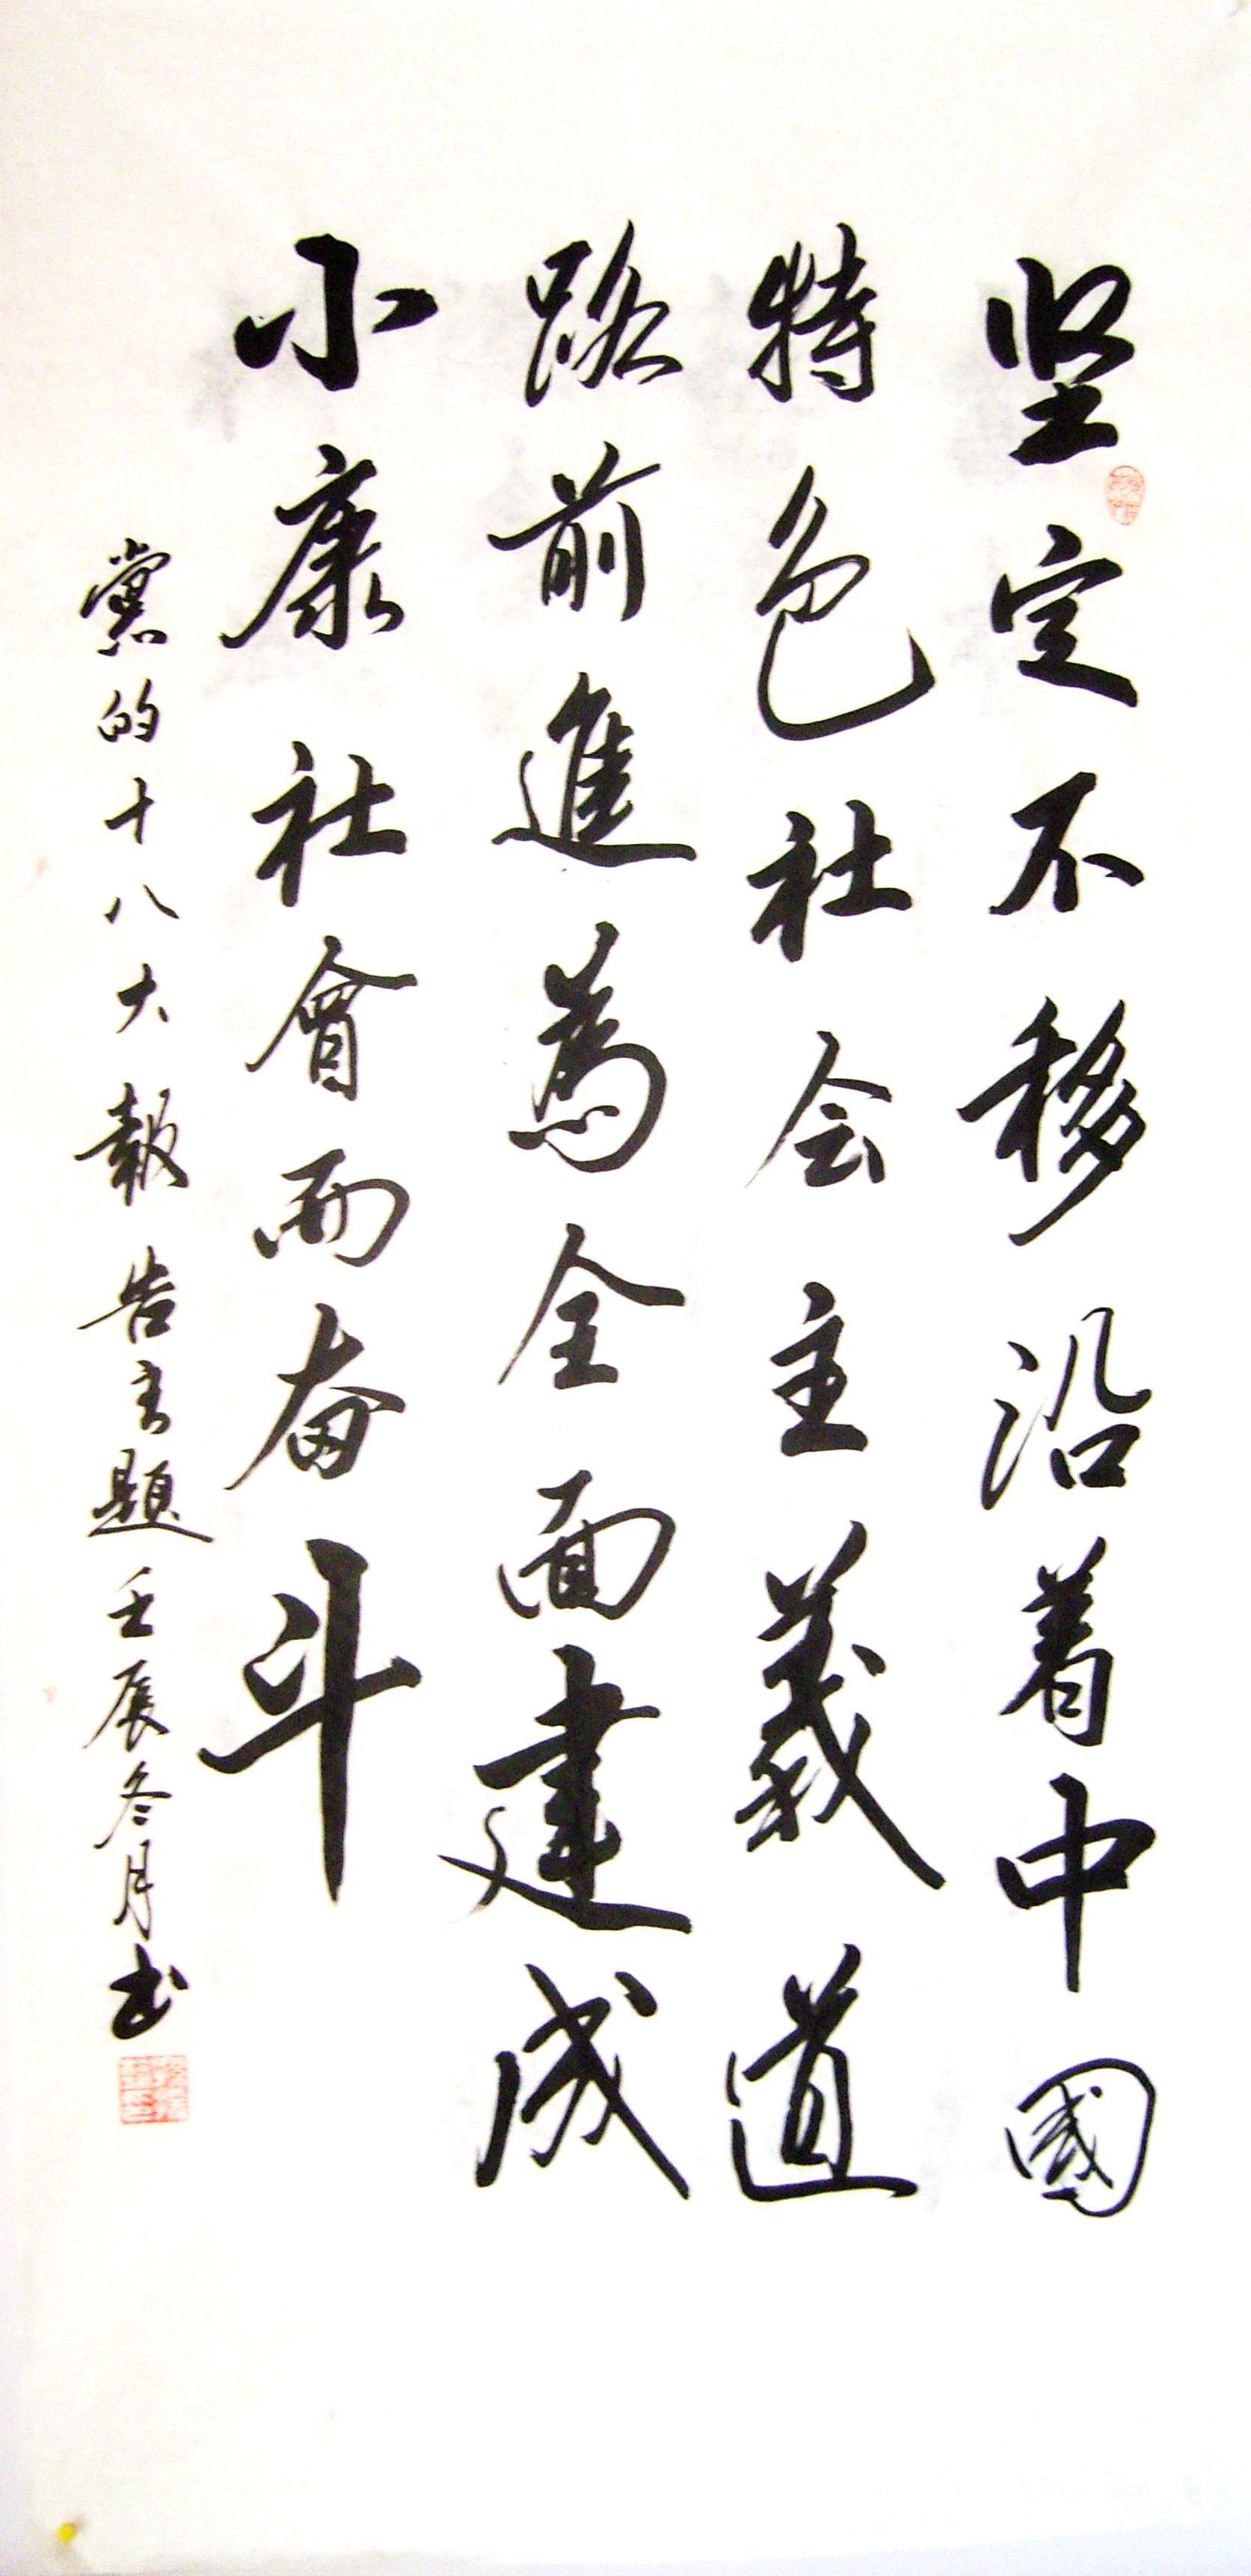 坚定不移沿着中國
特色社会主義道
路前進爲全面建成
小康社會而奋斗
黨的十八大報告主題壬辰冬月书